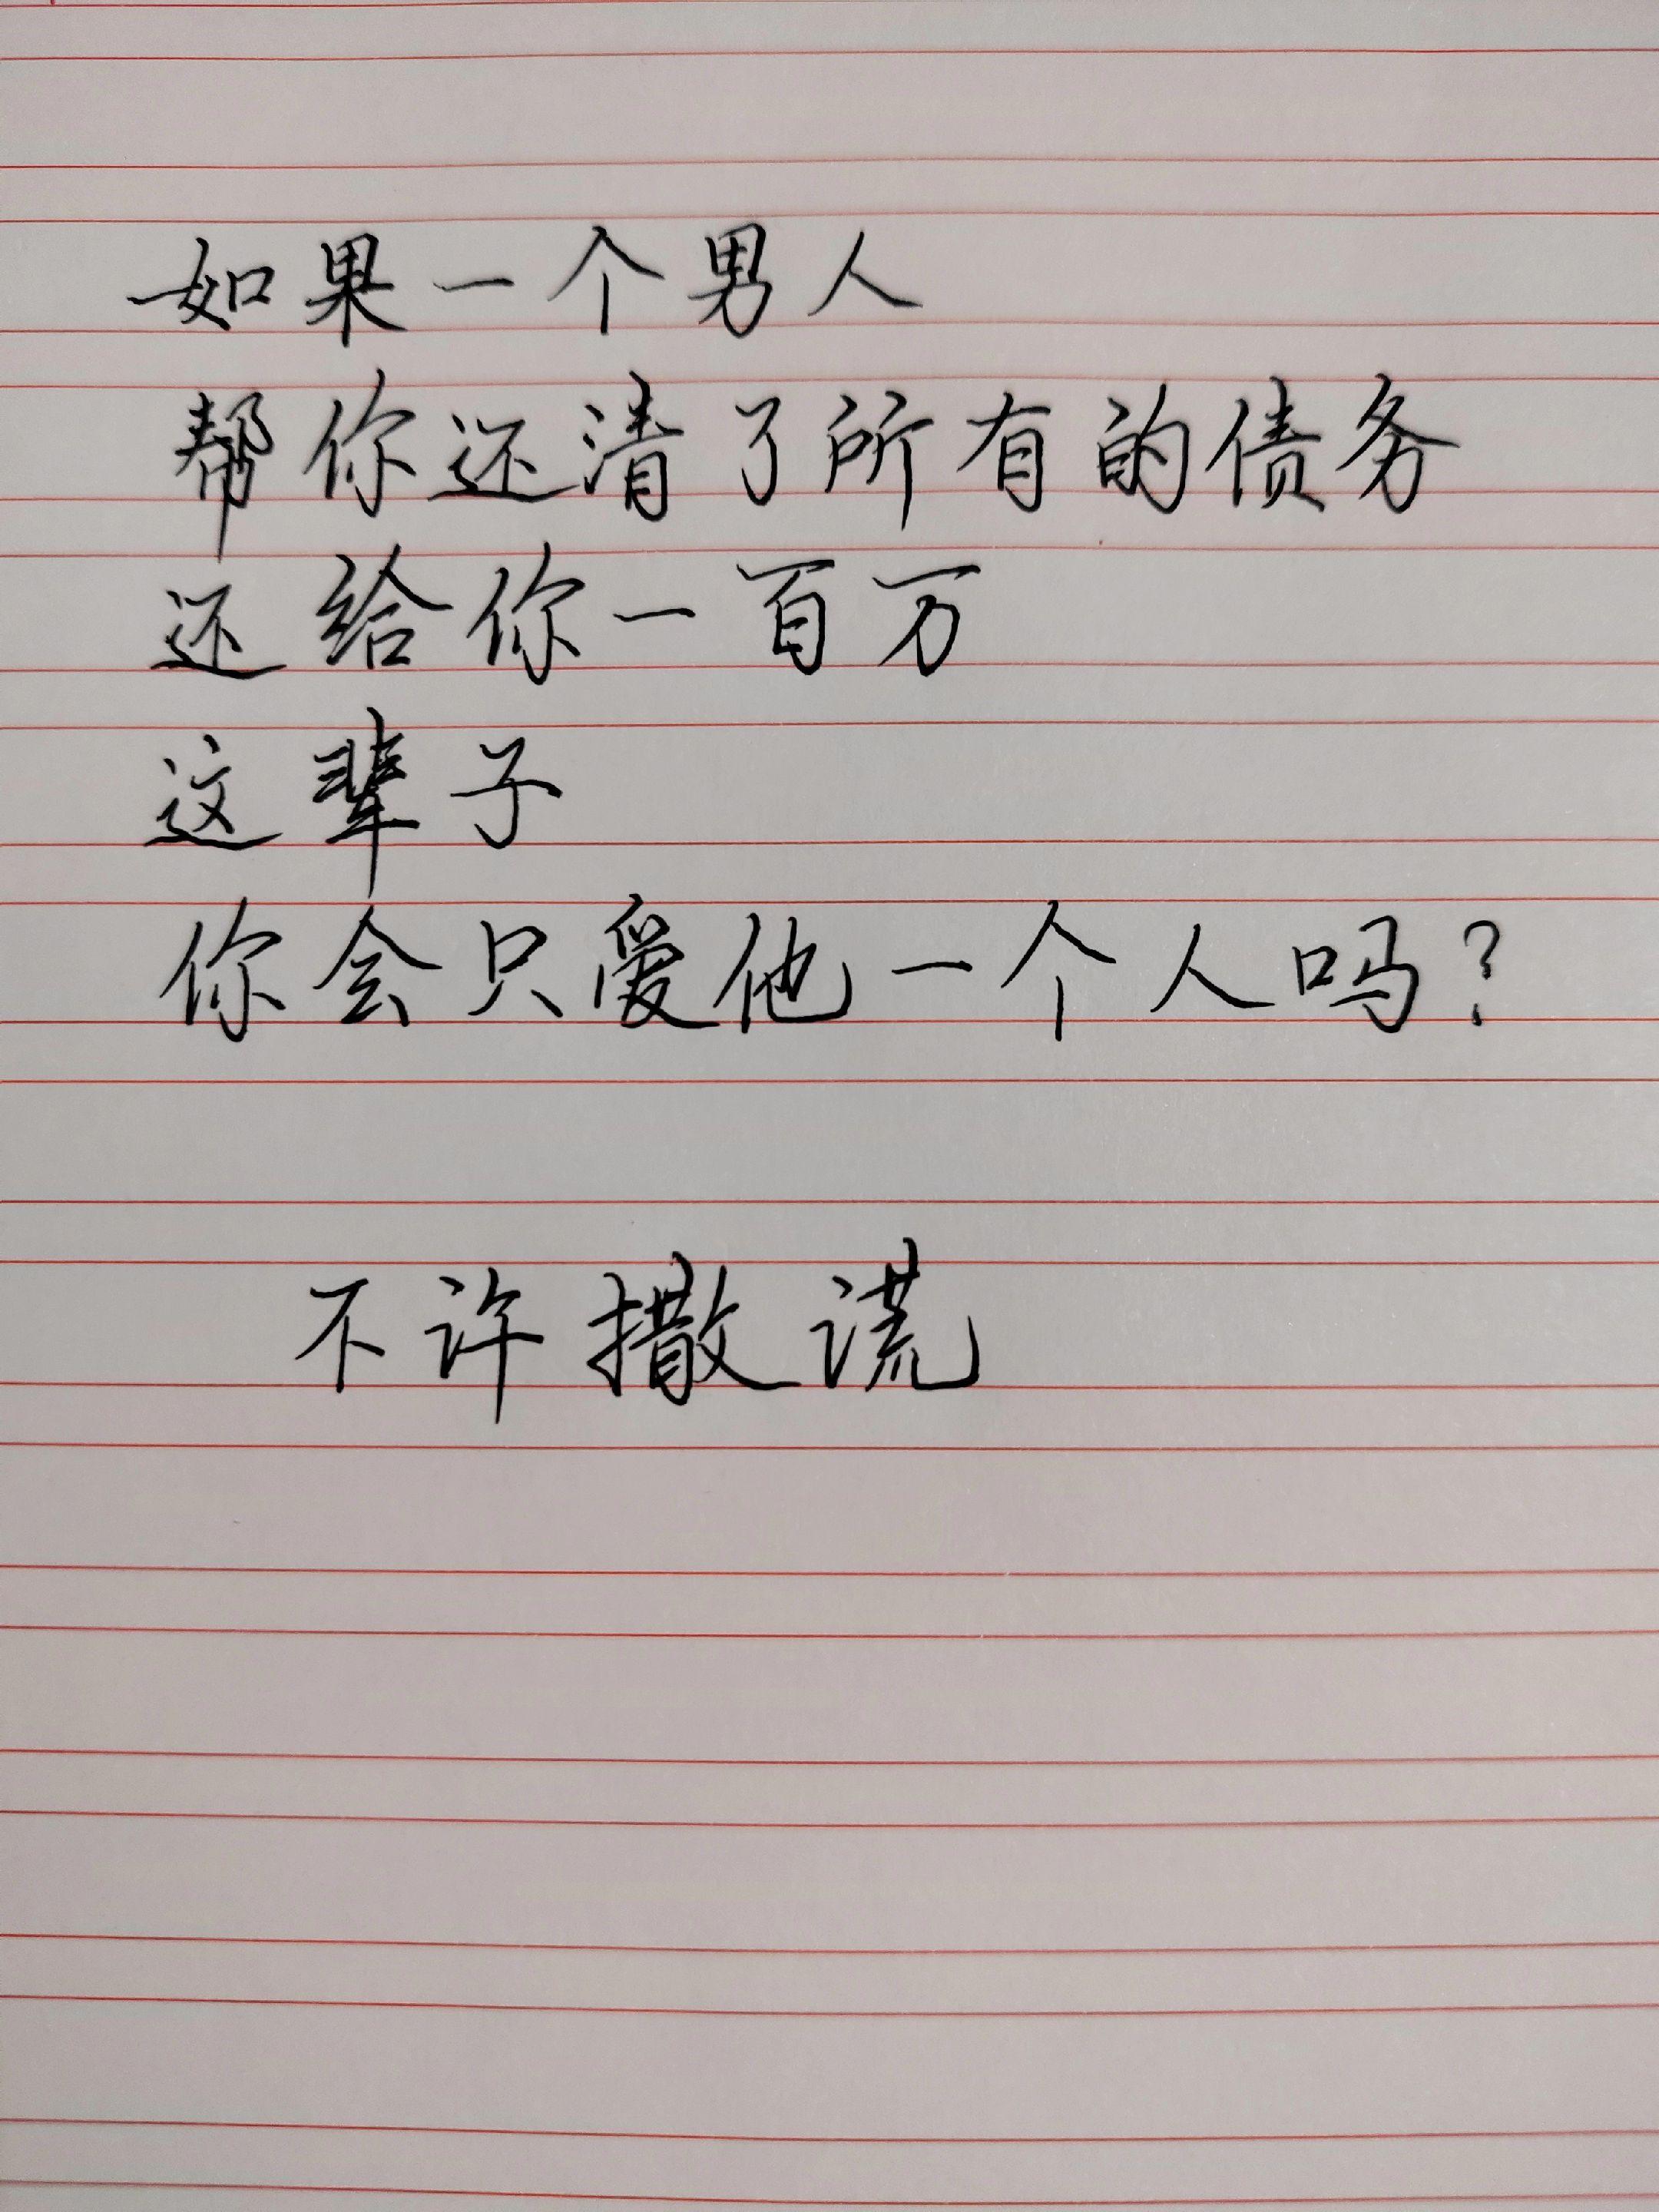 如果一个男人
帮你还清了所有的债务
还给你一百万
这辈子
你会只爱他一个人吗?
不许撒谎